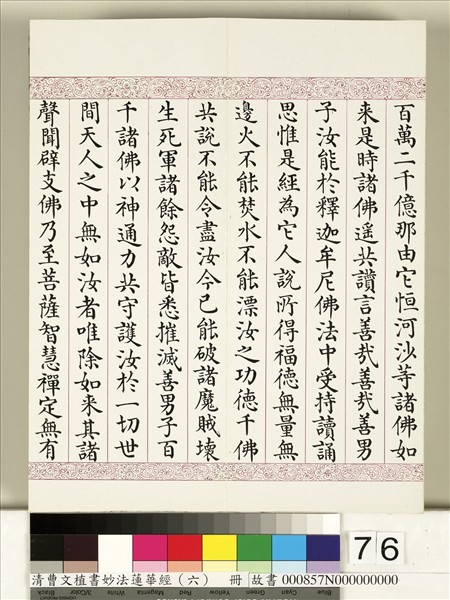 百萬二千億那由它恒河沙等諸佛如
来是時諸佛遙共讚言善哉善哉善男
子汝能於釋迦牟尼佛法中受持讀誦
思惟是經為它人說所得福德無量無
邊火不能焚水不能漂汝之功德千佛
共說不能令盡汝今已能破諸魔賊壞
生死軍諸餘怨敵皆悉摧滅善男子百
千諸佛以神通力共守護汝於一切世
間天人之中無如汝者唯除如来其諸
聲聞辟支佛乃至菩薩智慧禪定無有
76
清曹文植書妙法蓮華經(六) 冊 故書 000857N000000000
Black 3/Color White Magenta Red Yellow Green Cyan Blue